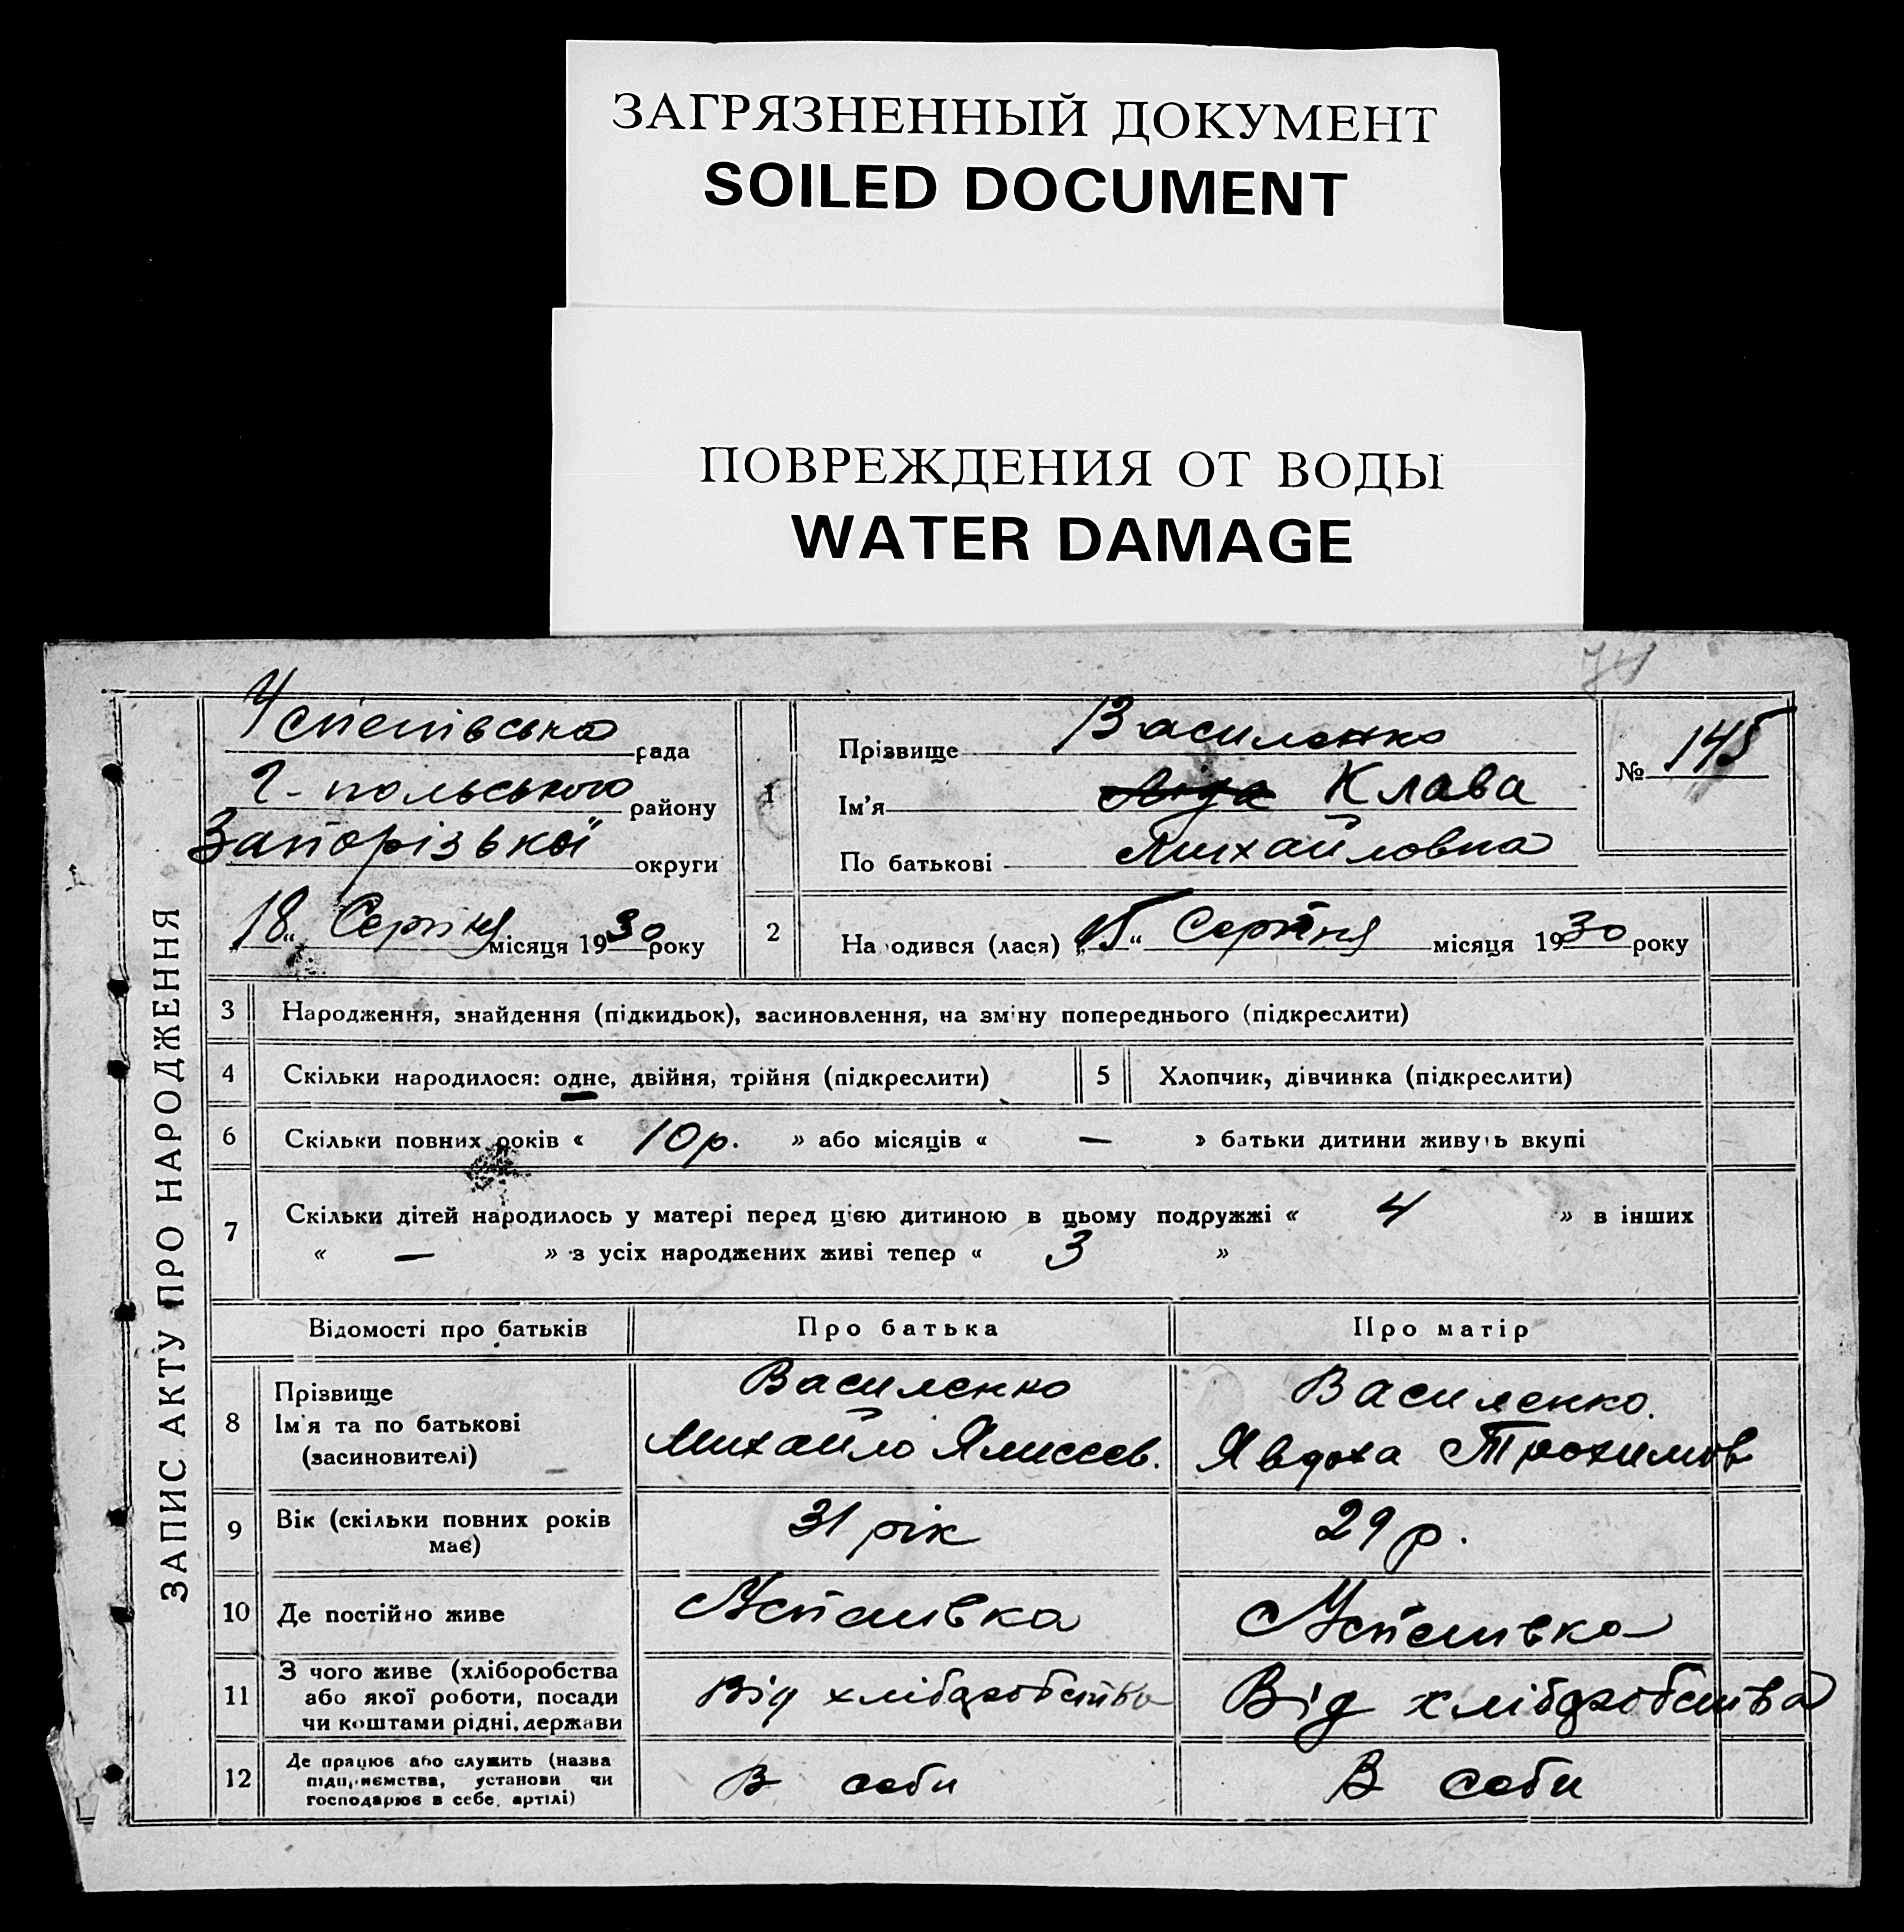 ЗАГРЯЗНЕННЫЙ ДОКУМЕНТ
SOILED DOCUMENT
ПОВРЕЖДЕНИЯ ОТ ВОДЫ
WATER DAMAGE
74
ЗАПИС АКТУ ПРО НАРОДЖЕННЯ
Успенівська рада
Г-польського району
Запорізької округи
18 „ Серпня місяця 1930 року
1 Прізвище Василенко
Ім'я Клава
По батькові Михайловна
№ 145
2 На одився (лася) „15“ Серпня місяця 1930 року
3 Народження, знайдення (підкидьок), засиновлення, на зміну попереднього (підкреслити)
4 Скільки народилося: одне, двійня, трійня (підкреслити)
5 Хлопчик, дівчинка (підкреслити)
6 Скільки повних років « 10 р. » або місяців « — » батьки дитини живуть вкупі
7 Скільки дітей народилось у матері перед цією дитиною в цьому подружжі « 4 » в інших
« — » з усіх народжених живі тепер « 3 »
Відомості про батьків Про батька Про матір
8 Прізвище
Ім'я та по батькові
(засиновителі)
Василенко
Михайло Ялисеев.
Василенко.
Явдоха Трохимов
9 Вік (скільки повних років
має)
31 рік
29 р.
10 Де постійно живе
Успенивка
Успенивка
11 З чого живе (хліборобства
або якої роботи, посади
чи коштами рідні, держави
Від хлібдробства
Від хлібдробства
12 Де працює або служить (назва
підприємства, установи чи
господарює в себе, артілі)
В себи
В себи